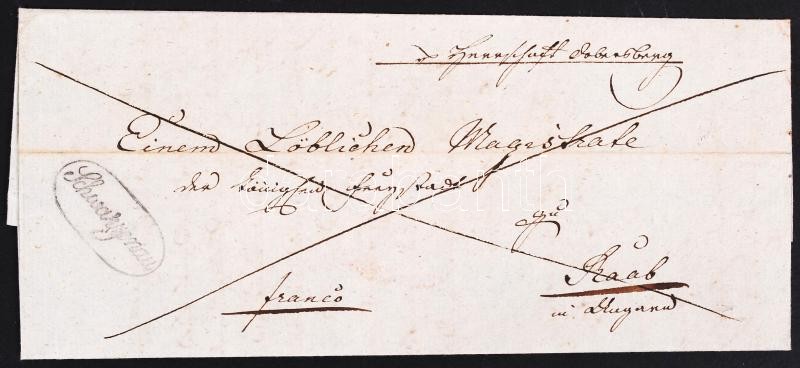 Herrschaft Dobersberg
Einem Löblichen Magistrate
der königlichen Freystadt
zu
Schwarzenau
Raab
franco
in Ungarn